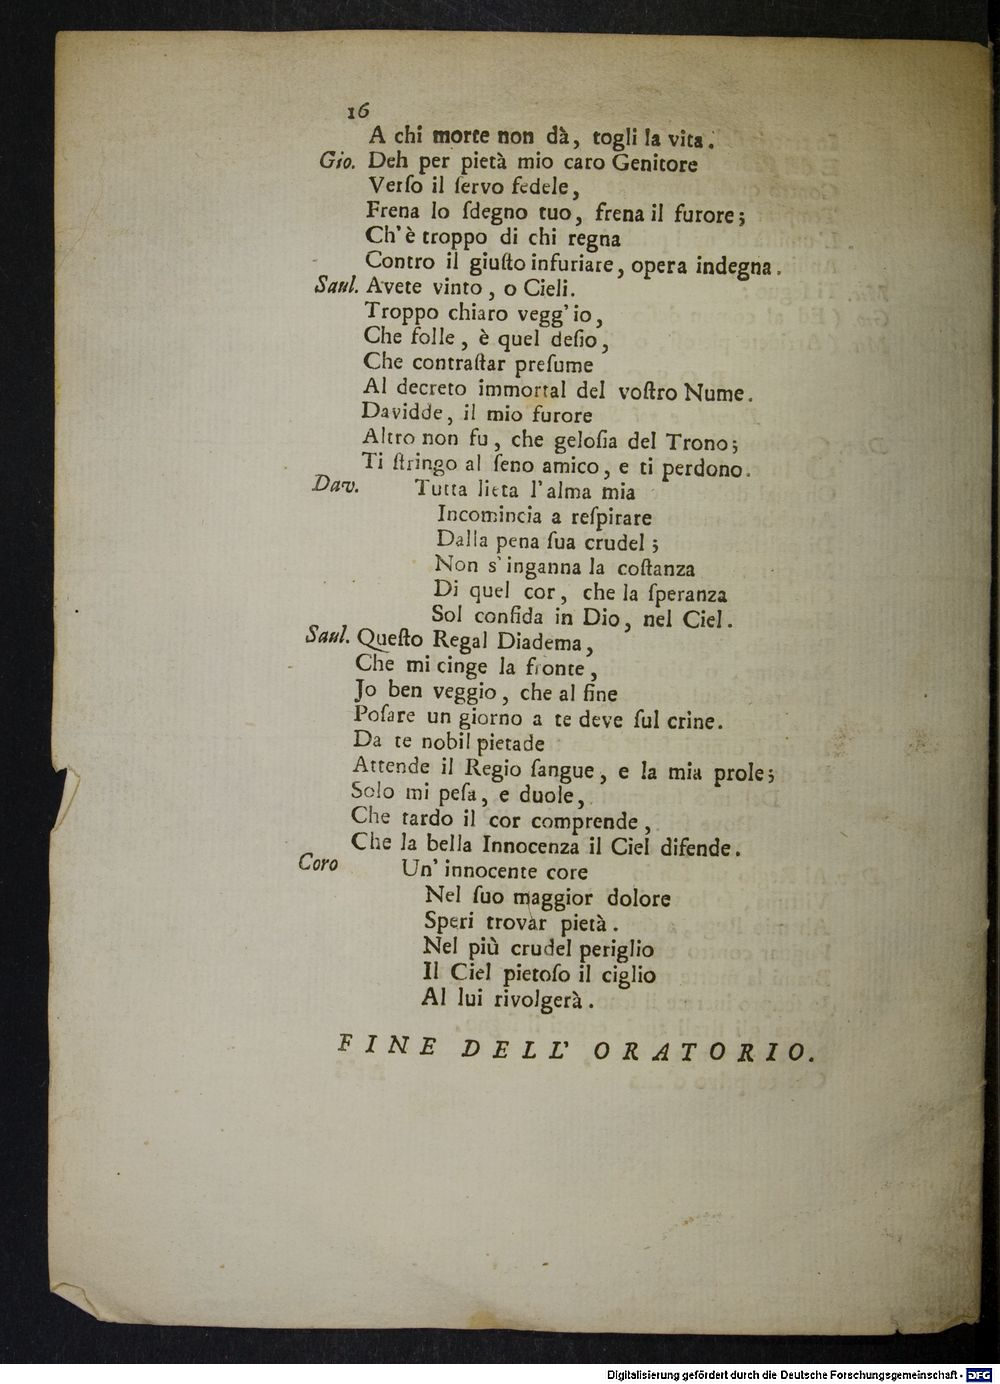 16
A chi morte non dà, togli la vita.
Gio. Deh per pietà mio caro Genitore
Verſo il ſervo fedele,
Frena lo ſdegno tuo, frena il furore;
Ch'è troppo di chi regna
Contro il giuſto infuriare, opera indegna.
Saul. Avete vinto, o Cieli.
Troppo chiaro vegg'io,
Che folle, è quel deſio,
Che contraſtar preſume
Al decreto immortal del voſtro Nume.
Davidde, il mio furore
Altro non fu, che geloſia del Trono;
Ti ſtringo al ſeno amico, e ti perdono.
Dav. Tutta lieta l'alma mia
Incomincia a reſpirare
Dalla pena ſua crudel;
Non s'inganna la coſtanza
Di quel cor, che la ſperanza
Sol confida in Dio, nel Ciel.
Saul. Queſto Regal Diadema,
Che mi cinge la fronte,
Jo ben veggio, che al fine
Poſare un giorno a te deve ſul crine.
Da te nobil pietade
Attende il Regio ſangue, e la mia prole;
Solo mi peſa, e duole,
Che tardo il cor comprende,
Che la bella Innocenza il Ciel difende.
Coro Un' innocente core
Nel ſuo maggior dolore
Speri trovar pietà.
Nel più crudel periglio
Il Ciel pietoſo il ciglio
Al lui rivolgerà.
FINE DELL' ORATORIO.
Digitalisierung gefördert durch die Deutsche Forschungsgemeinschaft - DFG